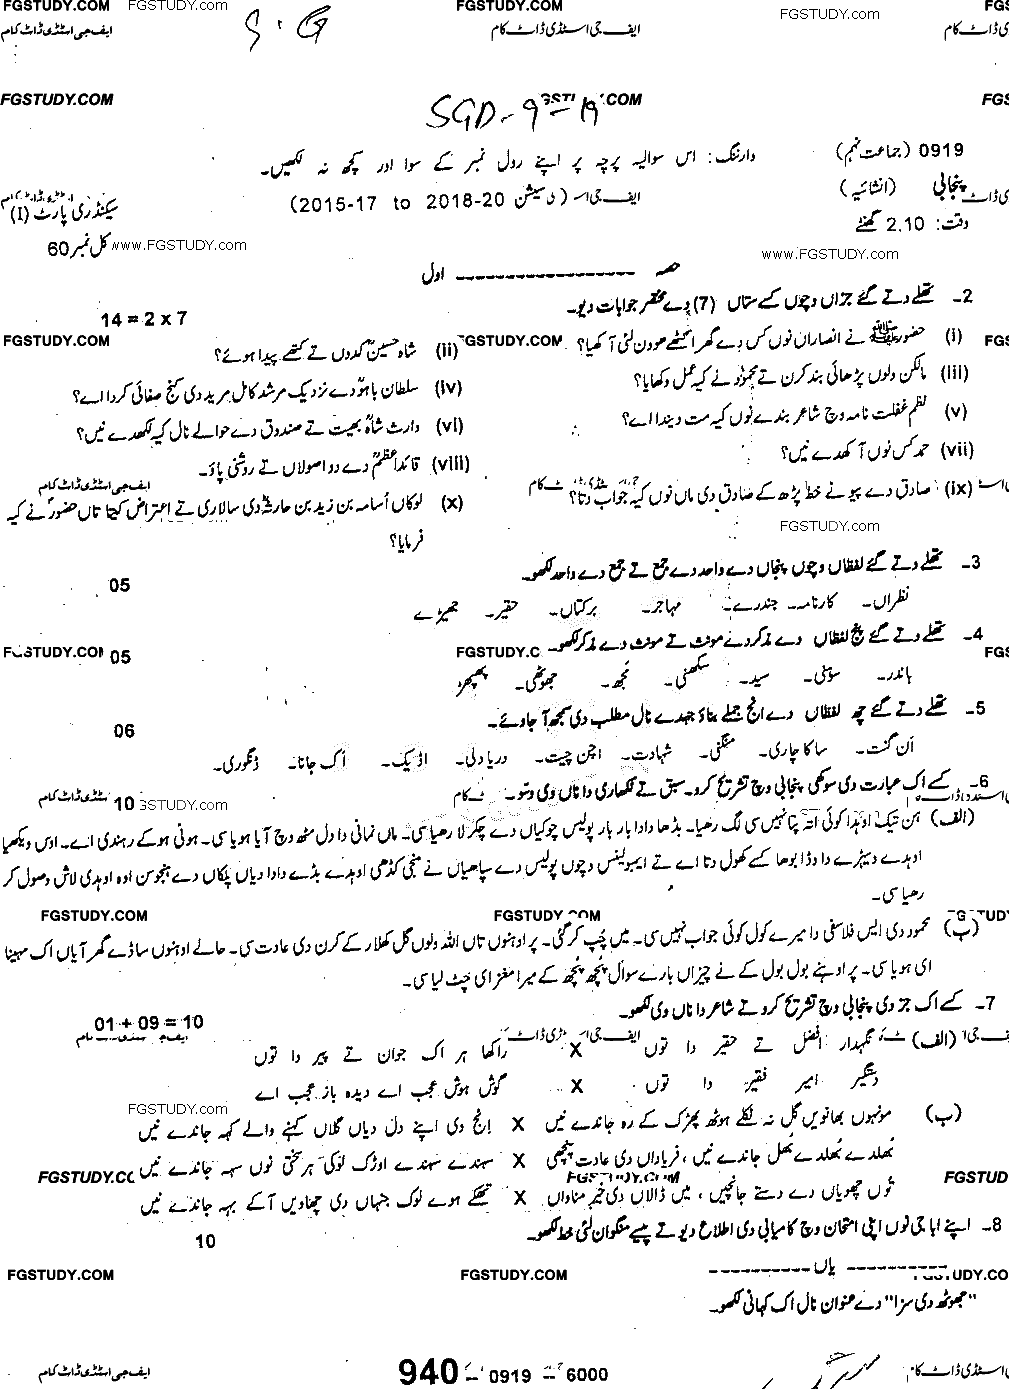 FGSTUDY.COM FGSTUDY.com FGSTUDY.COM FGSTUDY.com FGS
ایف جی اسٹڈی ڈاٹ کام S.G ایف جی اسٹڈی ڈاٹ کام ڈی ڈاٹ کام
FGSTUDY.COM SGD-9-19 .COM FGS
0919 (جماعت نہم) وارننگ: اس سوالیہ پرچہ پر اپنے رول نمبر کے سوا اور کچھ نہ لکھیں۔
پنجابی (انشائیہ) (سیشن 20-2018 to 17-2015) سیکنڈری پارٹ (I)
وقت: 2.10 گھنٹے www.FGSTUDY.com www.FGSTUDY.com کل نمبر 60
حصہ ------------------- اول
2۔ تھلے دتے گئے جزاں وچوں کسے ستاں (7) دے مختصر جوابات دیو۔ 14 = 2 x 7
(i) حضورﷺ نے انصاراں نوں کس دے گھر اکٹھے ہوون لئی آکھیا؟ (ii) شاہ حسینؒ کدوں تے کتھے پیدا ہوئے؟
(iii) مالکن ولوں پڑھائی بند کرن تے محمود نے کیہ عمل وکھایا؟ (iv) سلطان باہوؒ دے نزدیک مرشد کامل مرید دی کنج صفائی کردا اے؟
(v) نظم غفلت نامہ وچ شاعر بندے نوں کیہ مت دیندا اے؟ (vi) وارث شاہؒ بھیت تے صندوق دے حوالے نال کیہ لکھدے نیں؟
(vii) حمد کس نوں آکھدے نیں؟ (viii) قائداعظمؒ دے دو اصولاں تے روشنی پاؤ۔
(ix) صادق دے پیو نے خط پڑھ کے صادق دی ماں نوں کیہ جواب دتا؟ (x) لوکاں اُسامہ بن زید بن حارثہ دی سالاری تے اعتراض کیتا تاں حضورؐ نے کیہ
فرمایا؟
FGSTUDY.com
3۔ تھلے دتے گئے لفظاں وچوں پنجاں دے واحد دے جمع تے جمع دے واحد لکھو۔ 05
نظراں۔ کارنامہ۔ جندرے۔ مہاجر۔ برکتاں۔ حقیر۔ جھیڑے
4۔ تھلے دتے گئے پنج لفظاں دے مذکر دے مونث تے مونث دے مذکر لکھو۔ 05
باندر۔ سوٹی۔ سید۔ سکھنی۔ مُجھ۔ جھوٹھی۔ پھپھڑ
5۔ تھلے دتے گئے چھ لفظاں دے انج جملے بناؤ جیہدے نال مطلب دی سمجھ آ جاوے۔ 06
اَن گنت۔ ساکاچاری۔ منگنی۔ شہادت۔ اچن چیت۔ دریا دلی۔ اڈیک۔ اَک جانا۔ ڈنگوری۔
6۔ کسے اک عبارت دی سوکھی پنجابی وچ تشریح کرو۔ سبق تے لکھاری دا ناں وی دسو۔ 10
(الف) ہن تیک اوہدا کوئی اتہ پتا نہیں سی لگ رھیا۔ بڈھا دادا بار بار پولیس چوکیاں دے چکر لا رھیا سی۔ ماں نمانی دا دل مٹھ وچ آیا ہویا سی۔ ہونی ہو کے رہندی اے۔ اوس ویکھیا
اوہدے ویہڑے دا وڈا بوھا کھول دتا اے تے ایمبولینس وچوں پولیس دے سپاھیاں نے منجی کڈھی اوہدے بڈے دادا دیاں پلکاں دے ہنجو سن اوہ اوہدی لاش وصول کر
رھیا سی۔
FGSTUDY.COM FGSTUDY.COM
(ب) محمود دی ایس فلاسفی دا میرے کول کوئی جواب نہیں سی۔ میں چُپ کر گئی۔ پر اوہنوں تاں اللہ ولوں گل کھلار کے کرن دی عادت سی۔ حالے اوہنوں ساڈے گھر آیاں اک مہینا
ای ہویا سی۔ پر اوہنے بول بول کے تے چیزاں بارے سوال پُچھ پُچھ کے میرا مغز ای چٹ لیا سی۔
7۔ کسے اک جز دی پنجابی وچ تشریح کرو تے شاعر دا ناں وی لکھو۔ 01 + 09 = 10
(الف) نگہدار افضل تے حقیر دا توں X راکھا ہر اک جوان تے پیر دا توں
دستگیر امیر فقیر دا توں X گوش ہوش عجب اے دیدہ باز عجب اے
(ب) مونہوں بھانویں گل نہ نکلے ہوٹھ پھڑک کے رہ جاندے نیں X انج وی اپنے دل دیاں گلاں کہنے والے کہہ جاندے نیں
بُھلدے بُھلدے بُھل جاندے نیں، فریاداں دی عادت پنچھی X سہندے سہندے اوڑک لوکی ہر سختی نوں سہہ جاندے نیں
توں چھویاں دے دستے جانچیں، میں ڈالاں دی خیر مناواں X تھکے ہوئے لوک جنہاں دی چھاویں آ کے بہہ جاندے نیں
8۔ اپنے ابا جی نوں اپنی امتحان وچ کامیابی دی اطلاع دیو تے پیسے منگوان لئی خط لکھو۔ 10
FGSTUDY.COM FGSTUDY.COM ---------- یاں ----------
"جھوٹھ دی سزا" دے عنوان نال اک کہانی لکھو۔
ایف جی اسٹڈی ڈاٹ کام 940 -- 0919 -- 6000